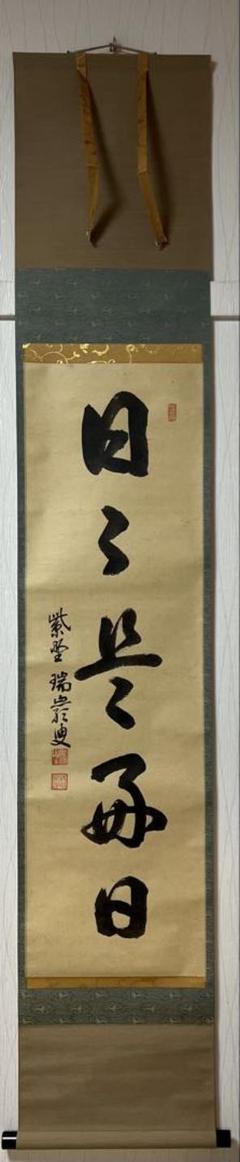 日々是好日
紫野 瑞巌叟